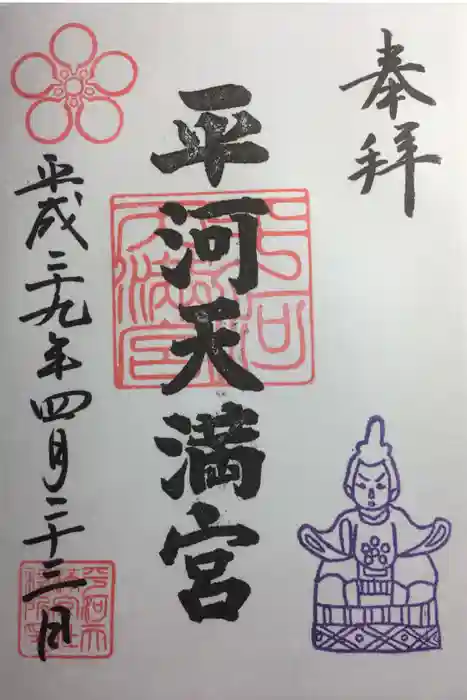 奉拝
平河天満宮
平成二十九年四月二十三日